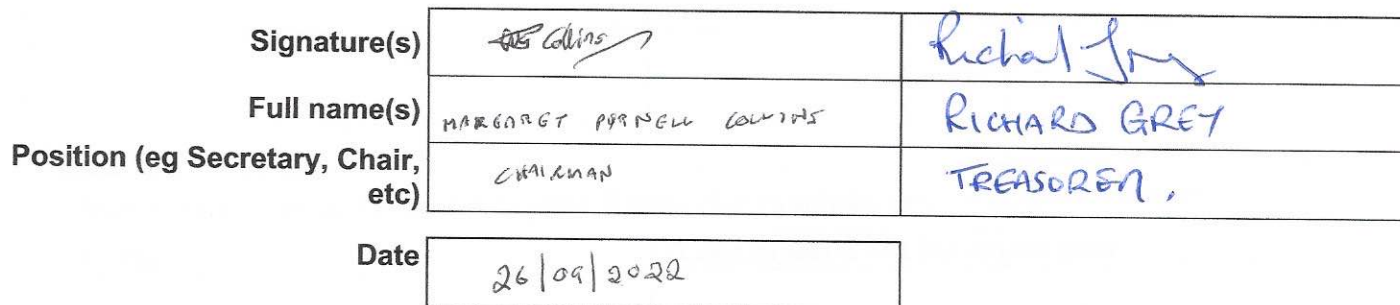 Signature(s) Collins Richard Grey
Full name(s) MARGARET PURNELL COLLINS RICHARD GREY
Position (eg Secretary, Chair, CHAIRMAN TREASURER.
etc)
Date 26/09/2022